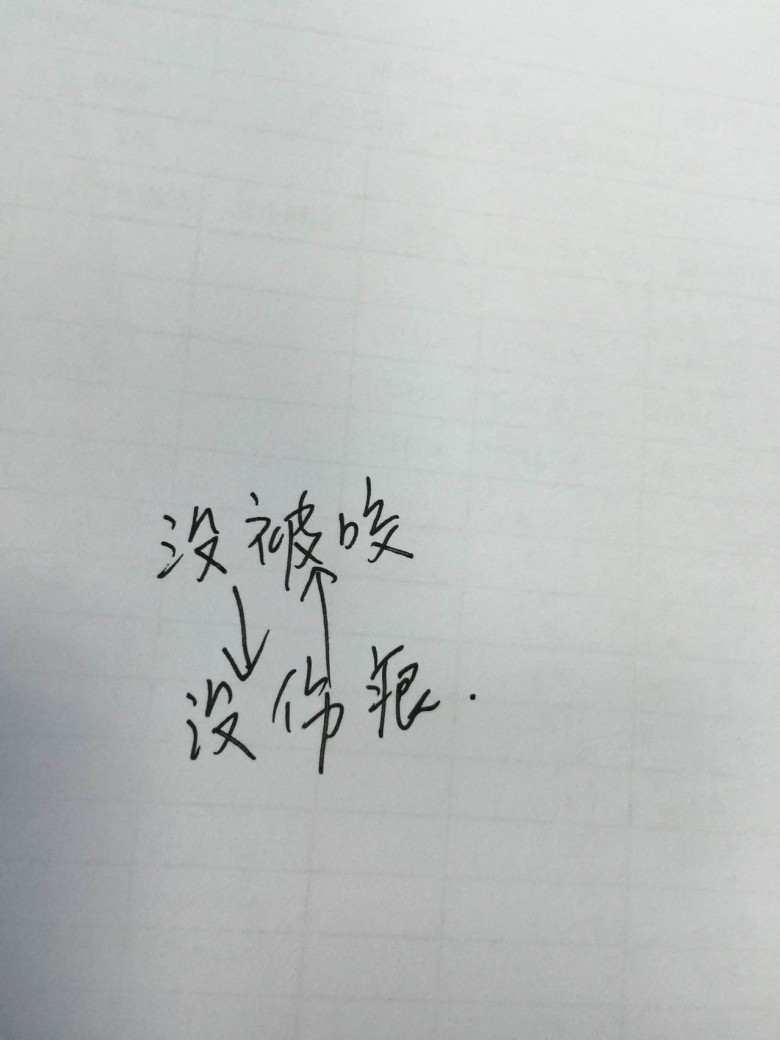 没被咬
没伤痕.